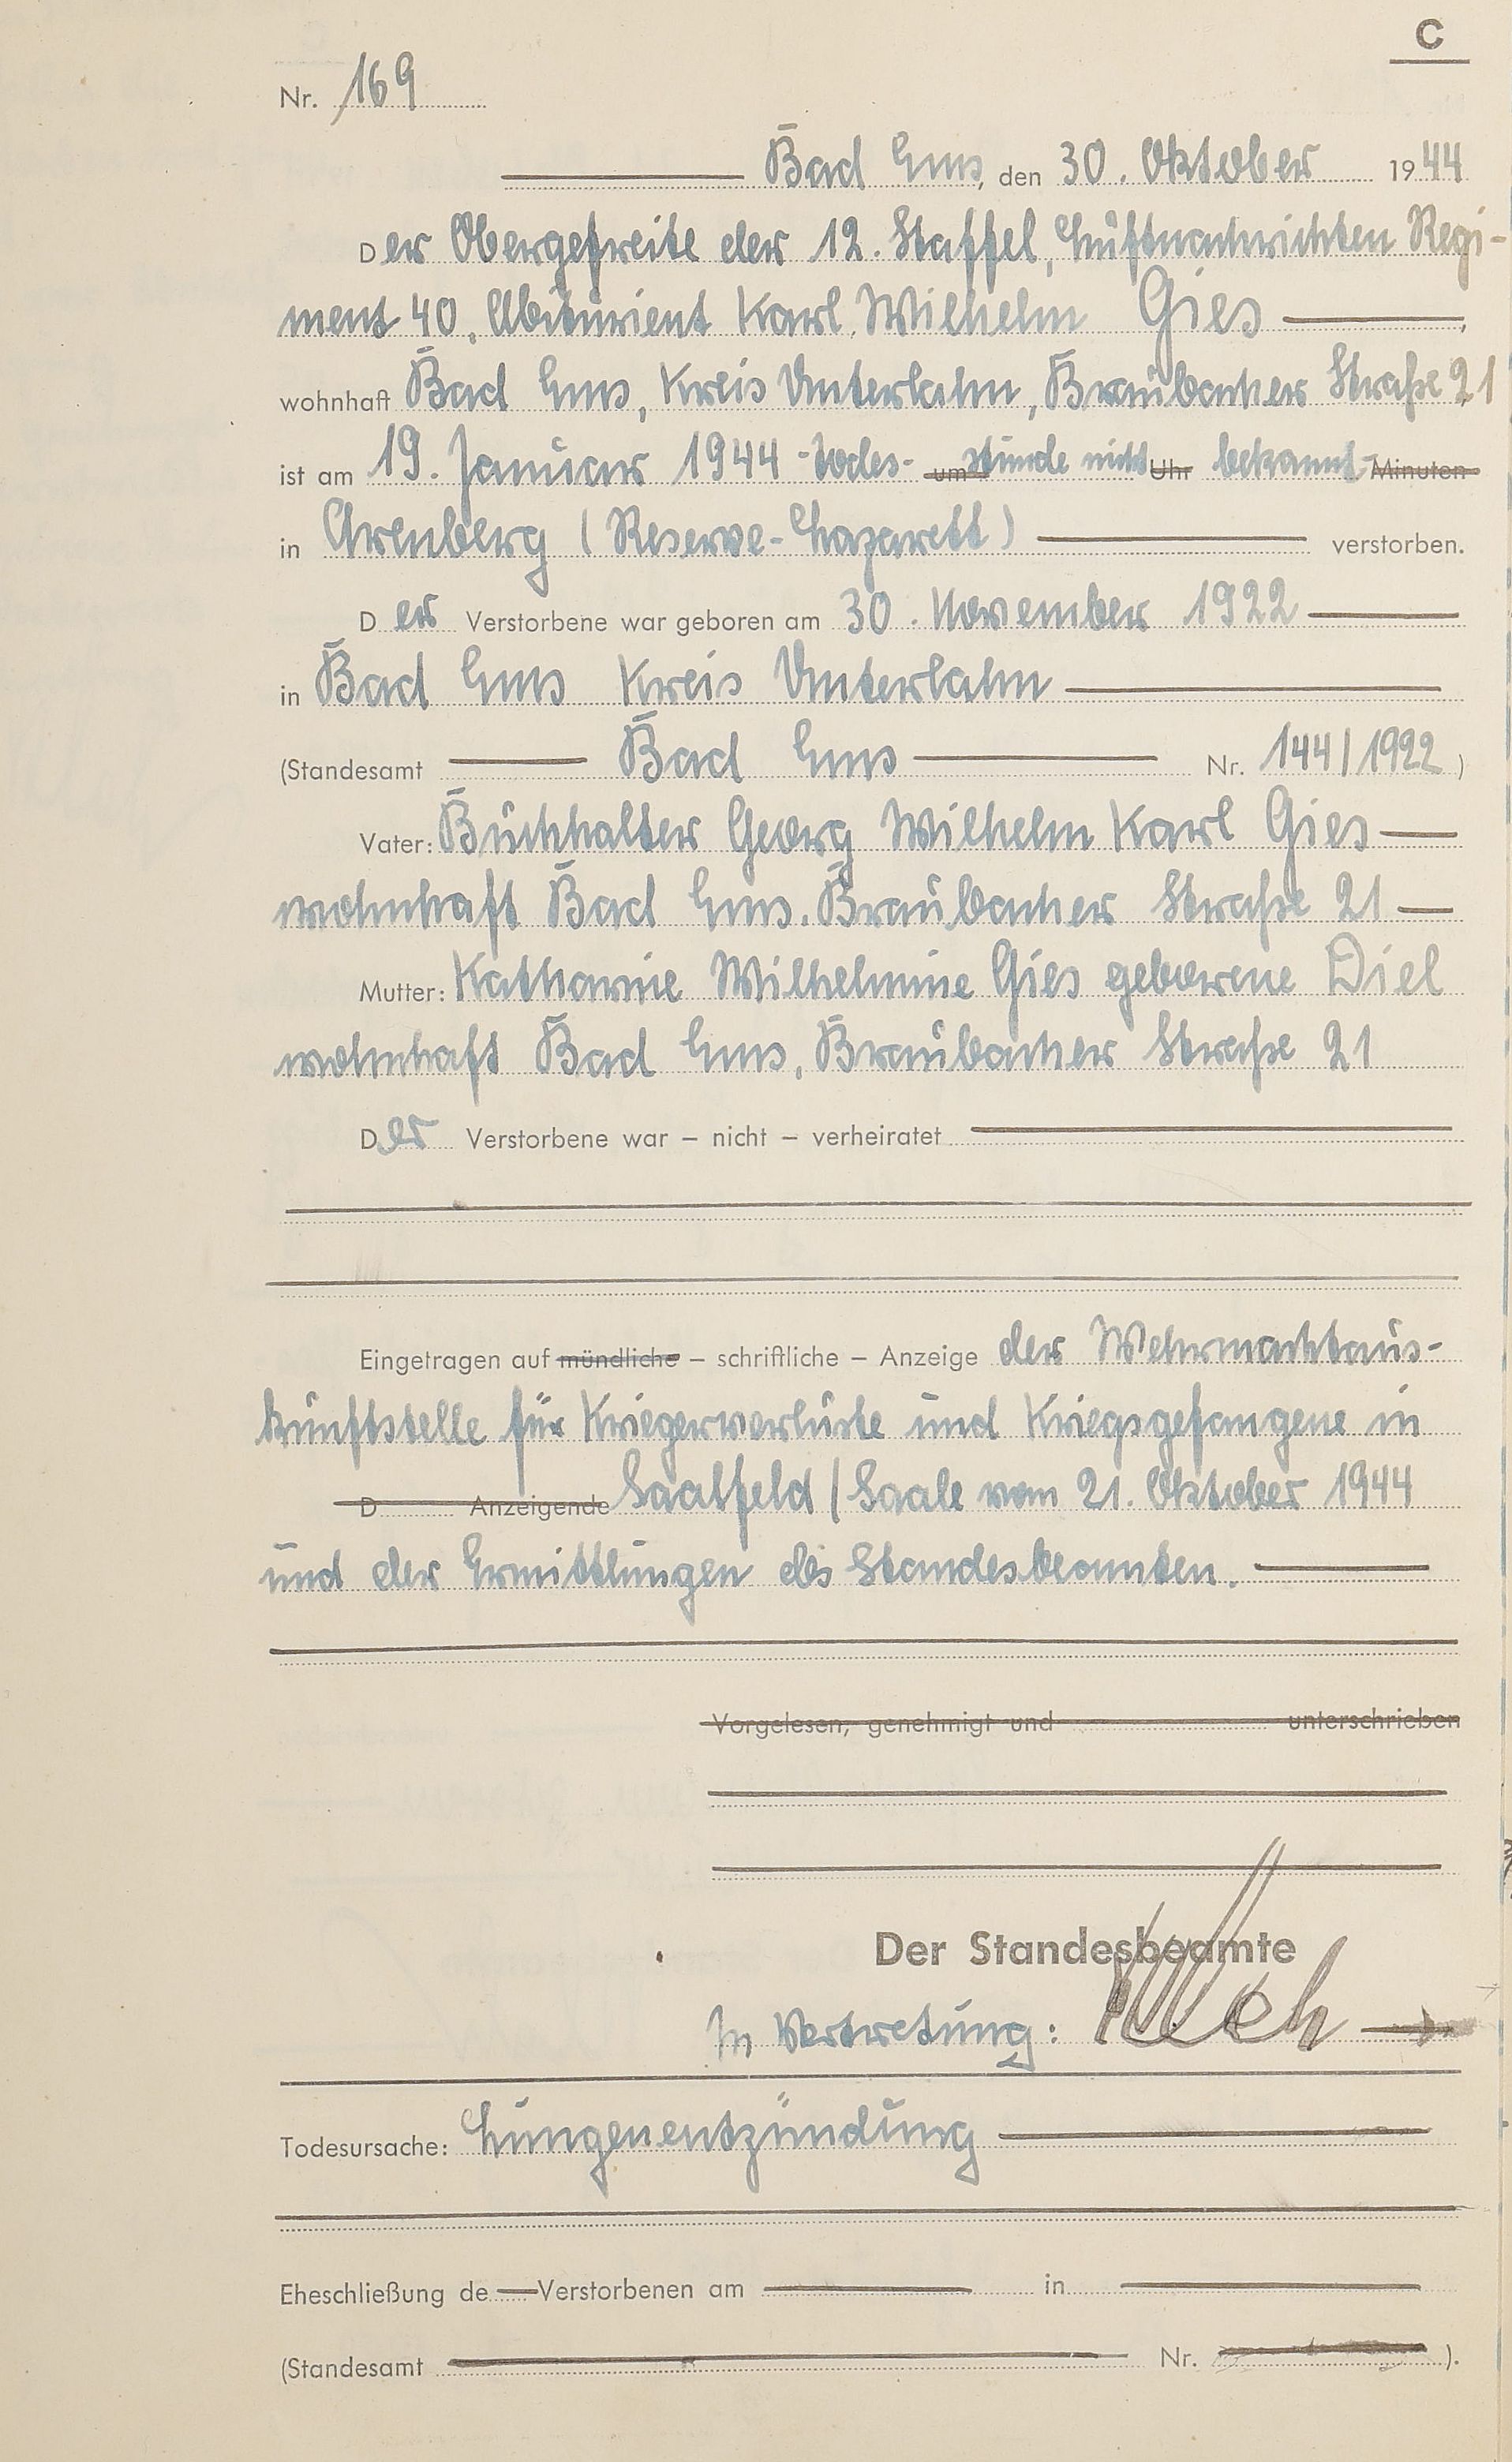 C
Nr. 169
Bad Ems, den 30. Oktober 1944
Der Obergefreite der 12. Staffel, Luftnachrichten Regi-
ment 40, Abiturient Karl Wilhelm Gies,
wohnhaft Bad Ems, Kreis Unterlahn, Braubacher Straße 21
ist am 19. Januar 1944 -Todes- um stunde nicht Uhr bekannt- Minuten
in Arenberg (Reserve-Lazarett) verstorben.
Der Verstorbene war geboren am 30. November 1922
in Bad Ems Kreis Unterlahn
(Standesamt Bad Ems Nr. 144/1922)
Vater: Buchhalter Georg Wilhelm Karl Gies
wohnhaft Bad Ems. Braubacher Straße 21
Mutter: Katharine Wilhelmine Gies geborene Diel
wohnhaft Bad Ems, Braubacher Straße 21
Der Verstorbene war – nicht – verheiratet
Eingetragen auf mündliche – schriftliche – Anzeige der Wehrmachtaus-
kunftstelle für Kriegerverluste und Kriegsgefangene in
D Anzeigende Saalfeld/Saale vom 21. Oktober 1944
und der Ermittlungen des Standesbeamten.
Vorgelesen, genehmigt und unterschrieben
Der Standesbeamte
In Vertretung:
Todesursache: Lungenentzündung
Eheschließung de Verstorbenen am in
(Standesamt Nr. ).